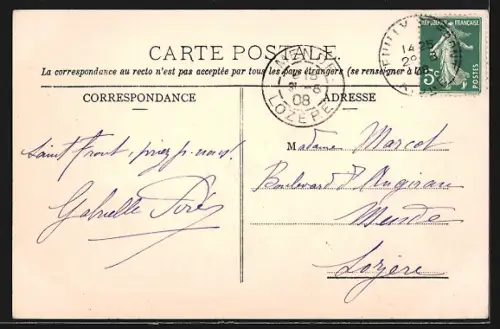 CARTE POSTALE
La correspondance au recto n'est pas acceptée par tous les pays étrangers (se renseigner à la
CORRESPONDANCE
ADRESSE
RÉPUBLIQUE FRANÇAISE
5c
POSTES
MENDE
08
LOZÈRE
14
Saint Front, priez p. nous!
Gabrielle
Madame Marcot
Boulevard d'Angiran
Mende
Lozère